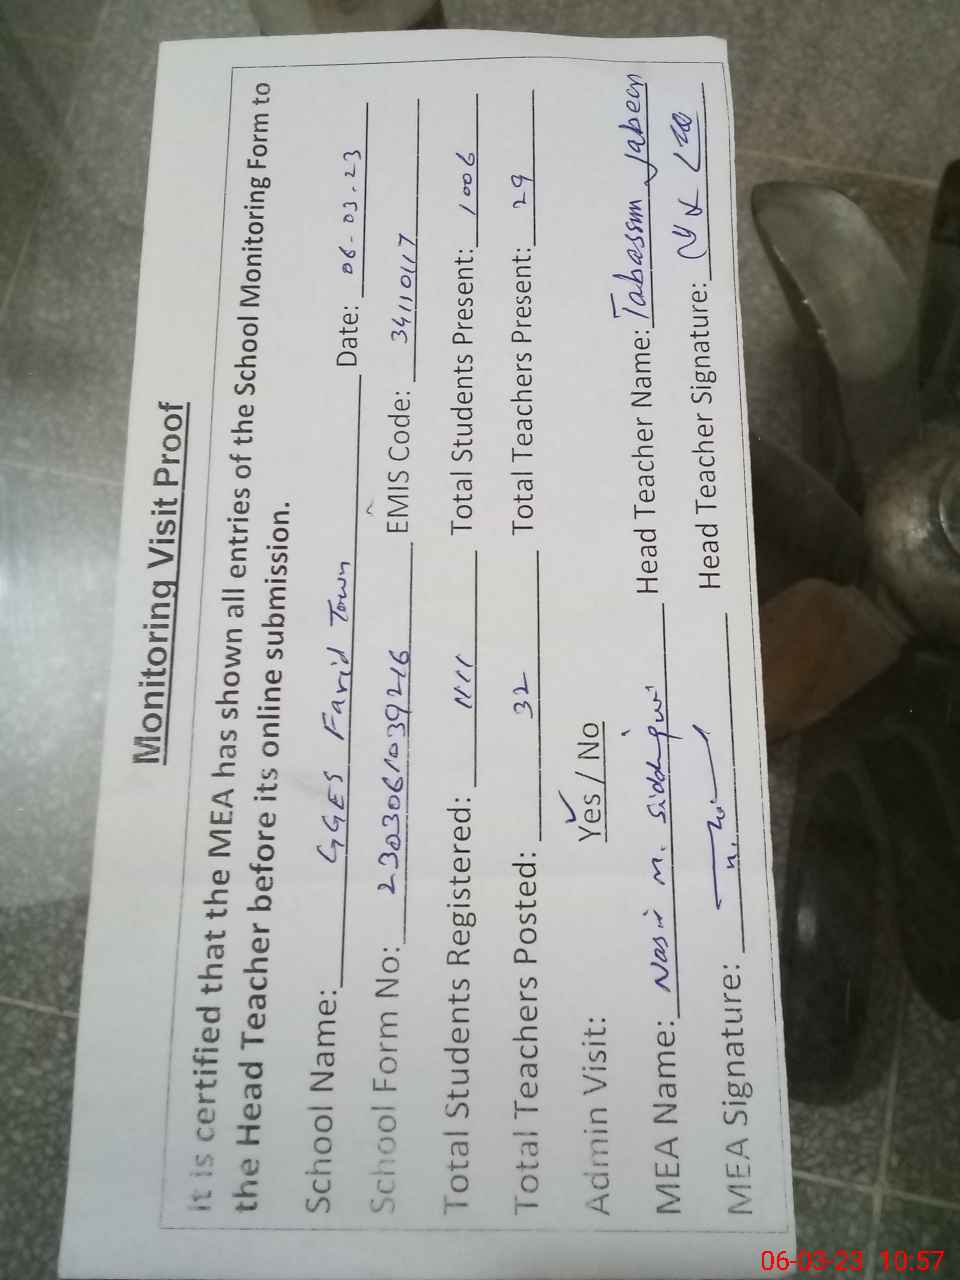 Monitoring Visit Proof
It is certified that the MEA has shown all entries of the School Monitoring Form to
the Head Teacher before its online submission.
School Name: GGES Farid Town Date: 06-03-23
School Form No: 2303061039216 EMIS Code: 34110117
Total Students Registered: 1111 Total Students Present: 1006
Total Teachers Posted: 32 Total Teachers Present: 29
Admin Visit: Yes / No
MEA Name: Nasir M. Siddiqui Head Teacher Name: Tabassum Jabeen
MEA Signature: Head Teacher Signature:
06-03-23 10:57